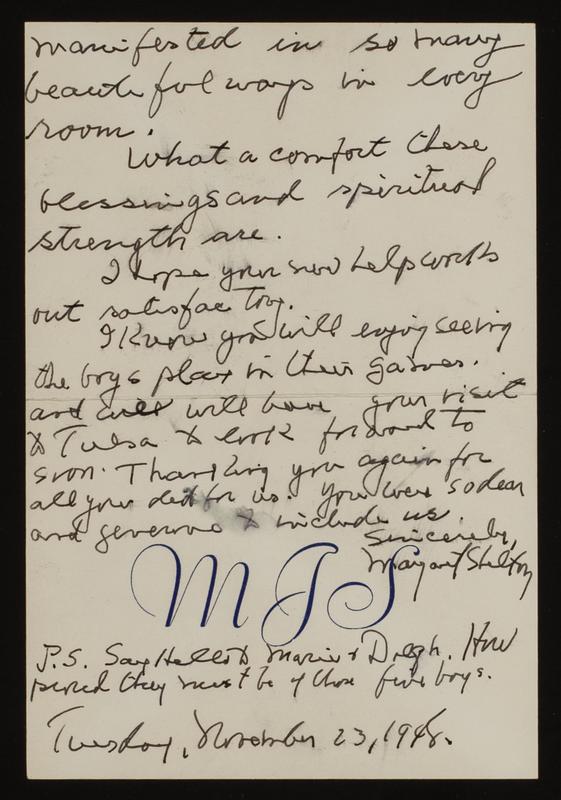 manifested in so many
beautiful ways in every
room.
What a comfort these
blessings and spiritual
strength are.
I hope your new help works
out satisfactory.
I know you will enjoy seeing
the boys play in their games.
and will have your visit
to Tulsa to look forward to
soon. Thanking you again for
all you did for us. You were so dear
and generous to include us
Sincerely,
Margaret Shelton
MJS
P.S. Say Hello to Marie & How
proud they must be of those five boys.
Tuesday, November 23, 1948.